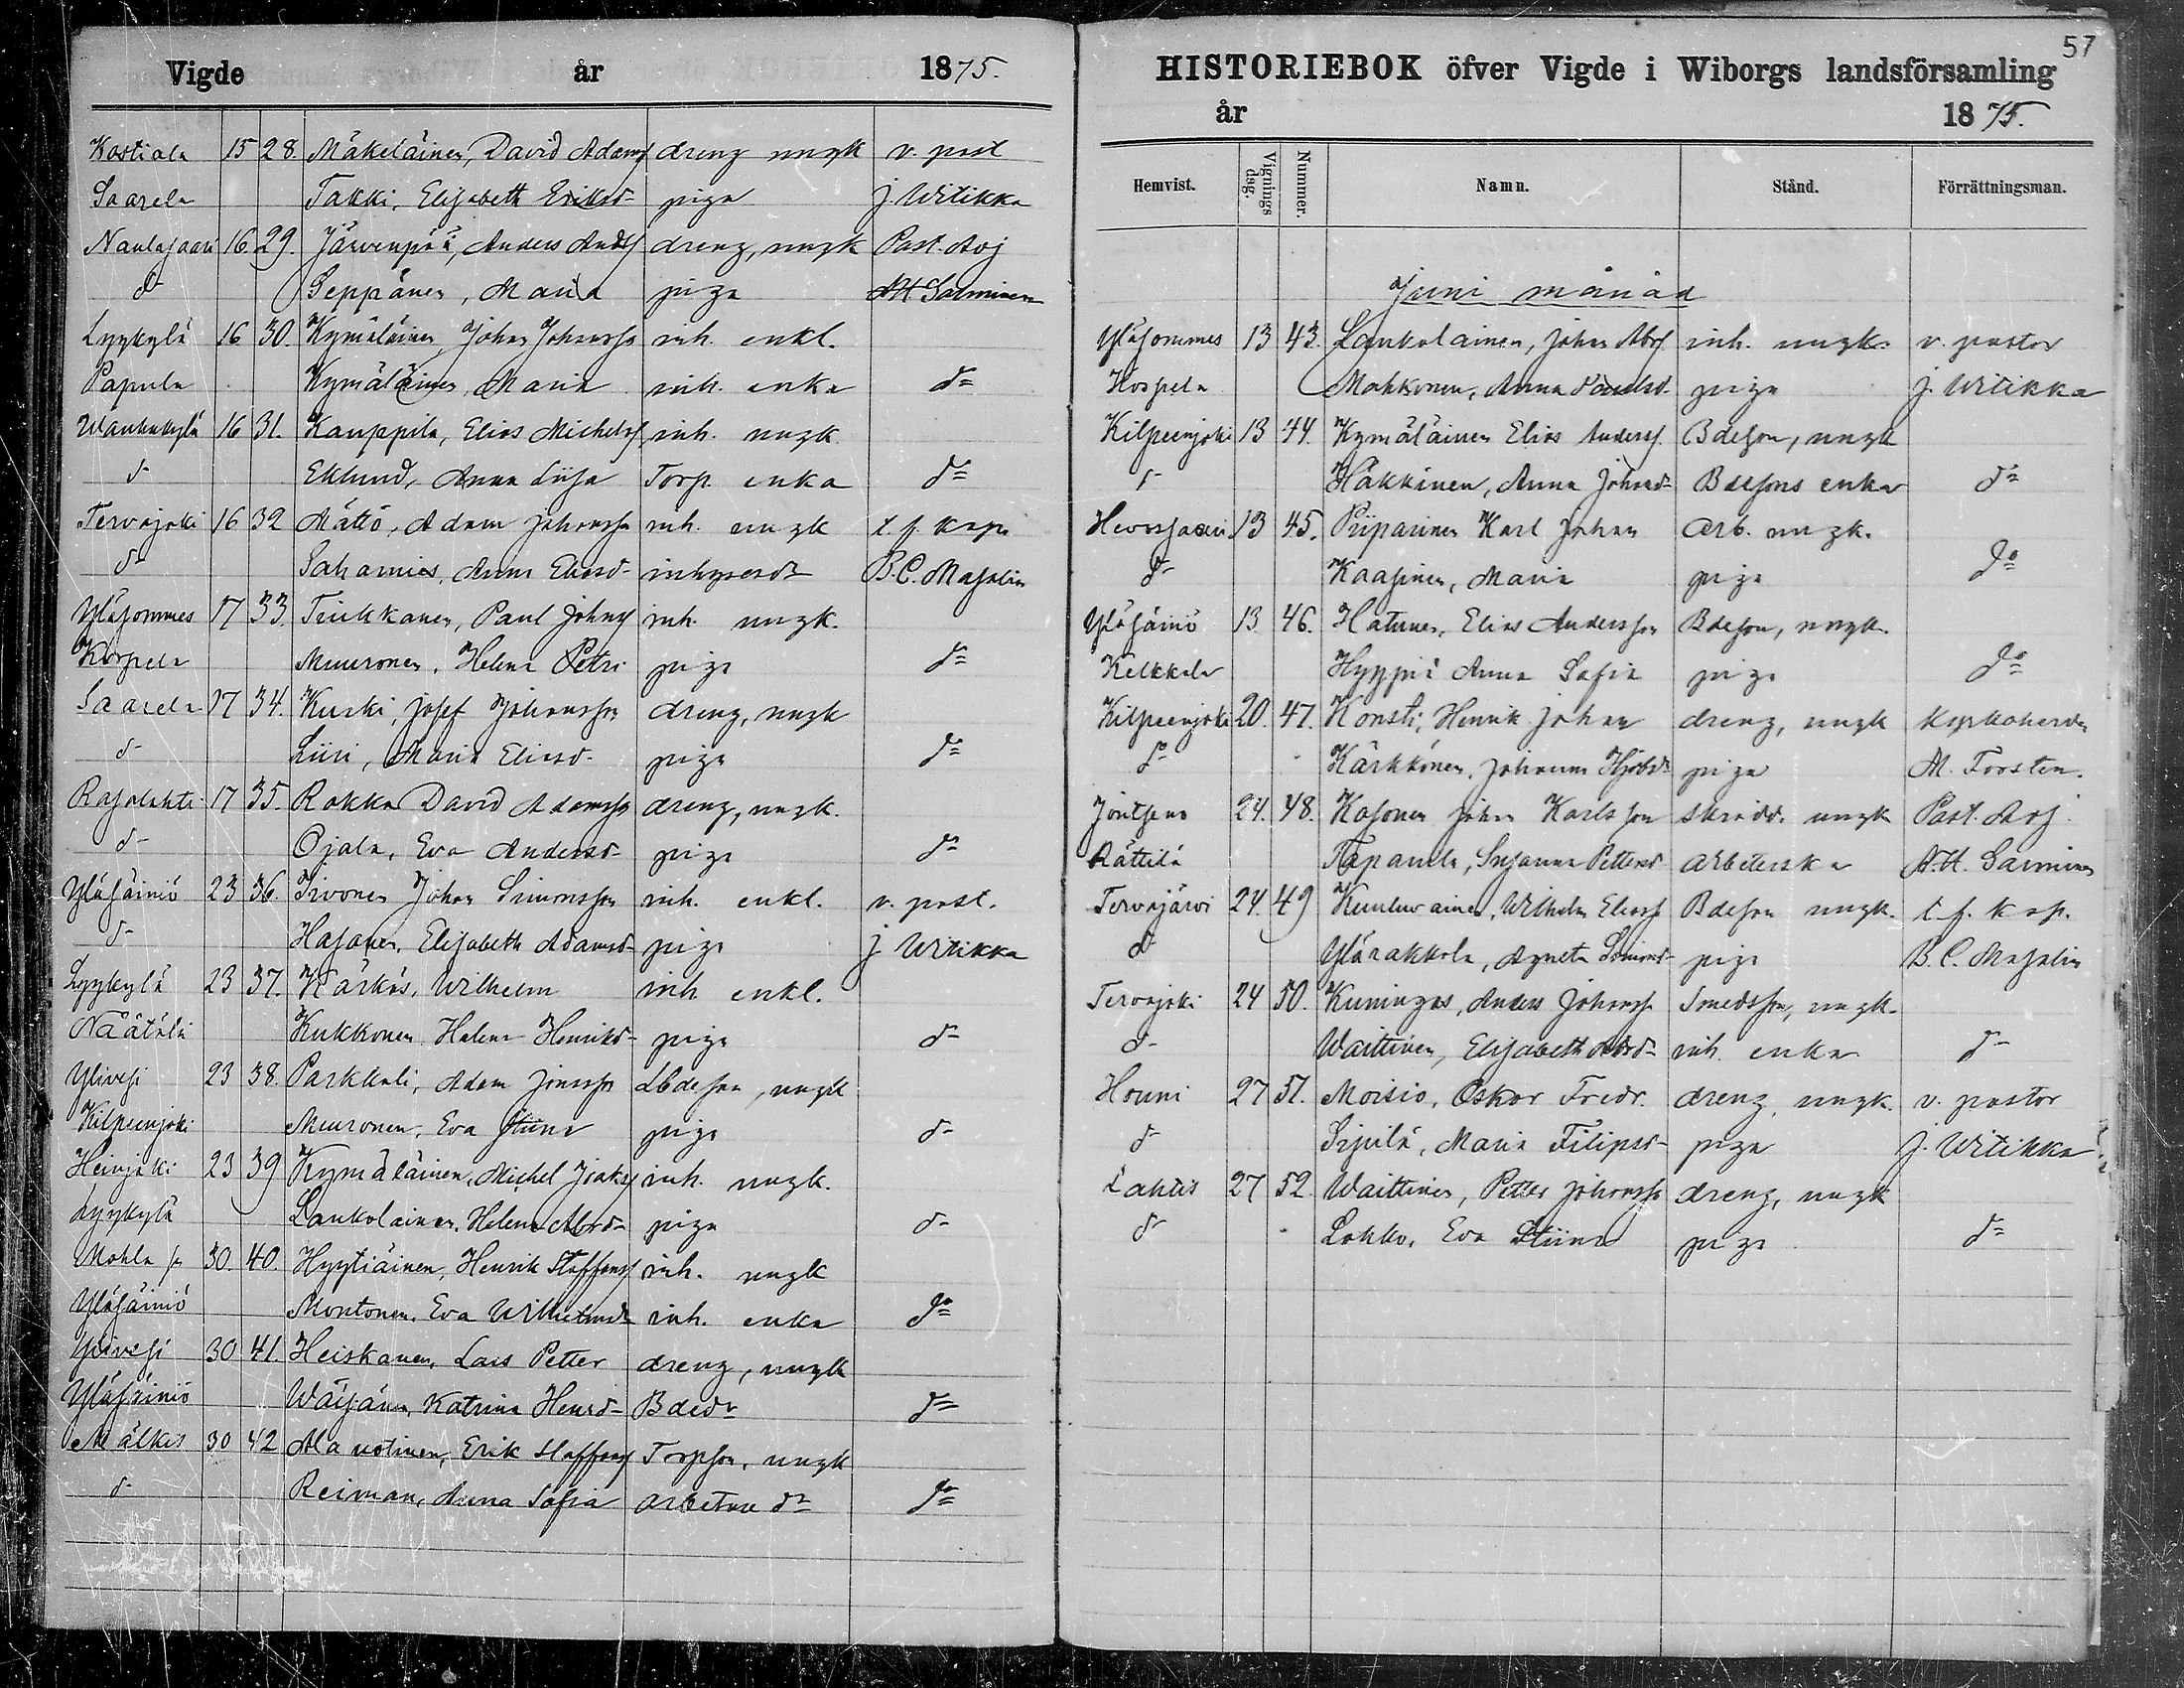 Vigde år 1875.
Kostiala 15 28. Mäkeläinen, David Adamsf dreng ungk v. past
Saarela Takki, Elisabeth Eriksd- piga J. Witikka
Naulasaari 16. 29. Järvenpää, Anders Andsf dreng, ungk Past. Adj
d- Seppänen, Maria piga AH Salminen
Lyykylä 16 30. Kymäläinen, Johan Johansso inh. enkl.
Papula Kymäläinen, Maria inh. enka do
16 31. Kauppila, Elias Michelsf inh. ungk.
d- Eklund, Anna Liisa Torp. enka do
Tervajoki 16 32 Mättö, Adam Johansso inh. ungk t. f. Kap.
d- Anna Eliasd- B. C. Masalin
Yläsommee 17 33. Tiukkanen, Paul Johnsf inh. ungk.
Korpela Muuronen, Helena Petri piga do
Saarela 17 34. Kurki, Josef Johansson dreng, ungk
d- Liiri, Maria Eliasd- piga do
Rasalahti 17 35. Rokka David Adamsso dreng, ungk.
d- Ojala, Eva Andersd- piga do
Yläsäiniö 23 36. Iivonen Johan Simonsson inh. enkl. v. past.
d- Hasanen, Elisabeth Adamsd- piga J Witikka
Lyykylä 23 37. Kärkäs, Wilhelm inh enkl.
Näätälä Kukkonen, Helena Henriksd- piga d-
Ylivesi 23 38. Parkkali, Adam Lbdeson, ungk
Kilpeenjoki Muuronen, Eva Stiina piga d-
Heinjoki 23 39 Kymäläinen, Michel inh. ungk.
Lyykylä Lankolainen, Helena Abrd- piga d-
Mohla 30. 40. Hyytiäinen, Henrik Staffansf inh. ungk
Yläsäiniö Montonen, Eva Wilhelmsd- inh. enka do
Ylivesi 30 41. Heiskanen, Lars Petter dreng, ungk
Yläsäiniö Katrina Henrd- Bdedr do
Mälkis 30 42 Erik Staffansf Torpson, ungk
d- Reiman, Anna Sofia do
57
HISTORIEBOK öfver Vigde i Wiborgs landsförsamling
år 1875.
Hemvist. Vignings dag. Nummer. Namn. Stånd. Förrättningsman.
Juni månad
Yläsommee 13 43. Lankolainen, Johan Abrf. inh. ungk. v. pastor
Korpela Mahkonen, Anna Paulsd. piga J. Witikka
Kilpeenjoki 13 44. Kymäläinen Elias Andersf. Bdeson, ungk
d- Häkkinen, Anna Johand- Bdesons enka do
13 45. Piiparinen Karl Johan arb. ungk.
d- Kaasinen, Maria piga do
Yläsäiniö 13 46. Hatunen, Elias Andersson Bdeson, ungk.
Kelkkala Hyppiä Anna Sofia piga do
Kilpeenjoki 20. 47. Konsti, Henrik Johan dreng, ungk Kyrkoherden
do Kärkkönen, Johanna piga M. Forstén.
24. 48. Kasonen Johan Karlsson skrädd. ungk Past. Adj.
Rättilä Tapanila, Susanna Pettersd arbeterska A.H. Salminen
Tervajärvi 24. 49 Wilhelm Eliasf Bdeson ungk. t. f. Kap.
d- Ylärakkola, Agneta Simonsd- piga B. C. Masalin
Tervajoki 24 50. Kuningas, Anders Johansso Smedsson, ungk.
d- Waittinen, Elisabeth Abrd- inh. enka d-
Houni 27 51. Moisio, Oskar Fredr. dreng, ungk. v. pastor
d- Sipilä, Maria Filipsd- piga J. Witikka
Lahtis 27 52. Waittinen, Petter Johansso dreng, ungk
d- Lokko, Eva Stiina piga do